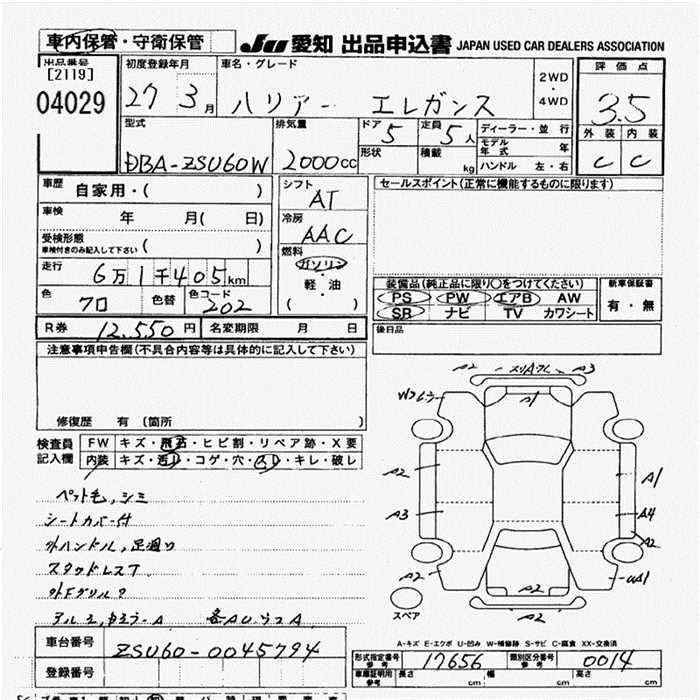 車内保管・守衛保管
JU 愛知 出品申込書 JAPAN USED CAR DEALERS ASSOCIATION
出品番号
[2119]
04029
初度登録年月
27 3 月
車名・グレード
ハリアー エレガンス
2WD
・
4WD
評価点
3.5
外装 内装
C C
型式
DBA-ZSU60W
排気量
2000cc
ドア 5
形状
定員 5人
積載 kg
ディーラー・並行
モデル年式 年
ハンドル 左・右
車歴 自家用・( )
車検 年 月( 日)
受検形態
車検付きのみ記入して下さい ( )
走行 6万1千405km
色 クロ 色替 色コード 202
シフト
AT
冷房
AAC
燃料
ガソリン
・
軽・油
( )
セールスポイント(正常に機能するものに限ります)
装備品(純正品に限り○をつけてください)
PS PW エアB AW
SR ナビ TV カワシート
新車保証書
有・無
後日品
R券 12,550円 名変期限 月 日
注意事項申告欄(不具合内容等は具体的に記入して下さい)
修復歴 有 〔箇所 〕
検査員
記入欄
FW キズ・飛石・ヒビ割・リペア跡・X要
内装 キズ・汚レ・コゲ・穴・スレ・キレ・破レ
ペット毛,シミ
シートカバー付
外ハンドル,足廻り
スタッドレスT
外Fグリル?
A2 A3
A1
A2 A1
A3 A4
A2
A2 A2
A2
スペア
A-キズ E-エクボ U-凹み W-補修跡 S-サビ C-腐食 XX-交換済
車台番号 ZSU60-0045794
登録番号
形式指定番号 参考 17656 類別区分番号 参考 0014
車庫証明用 参考 長さ cm 幅 cm 高さ cm